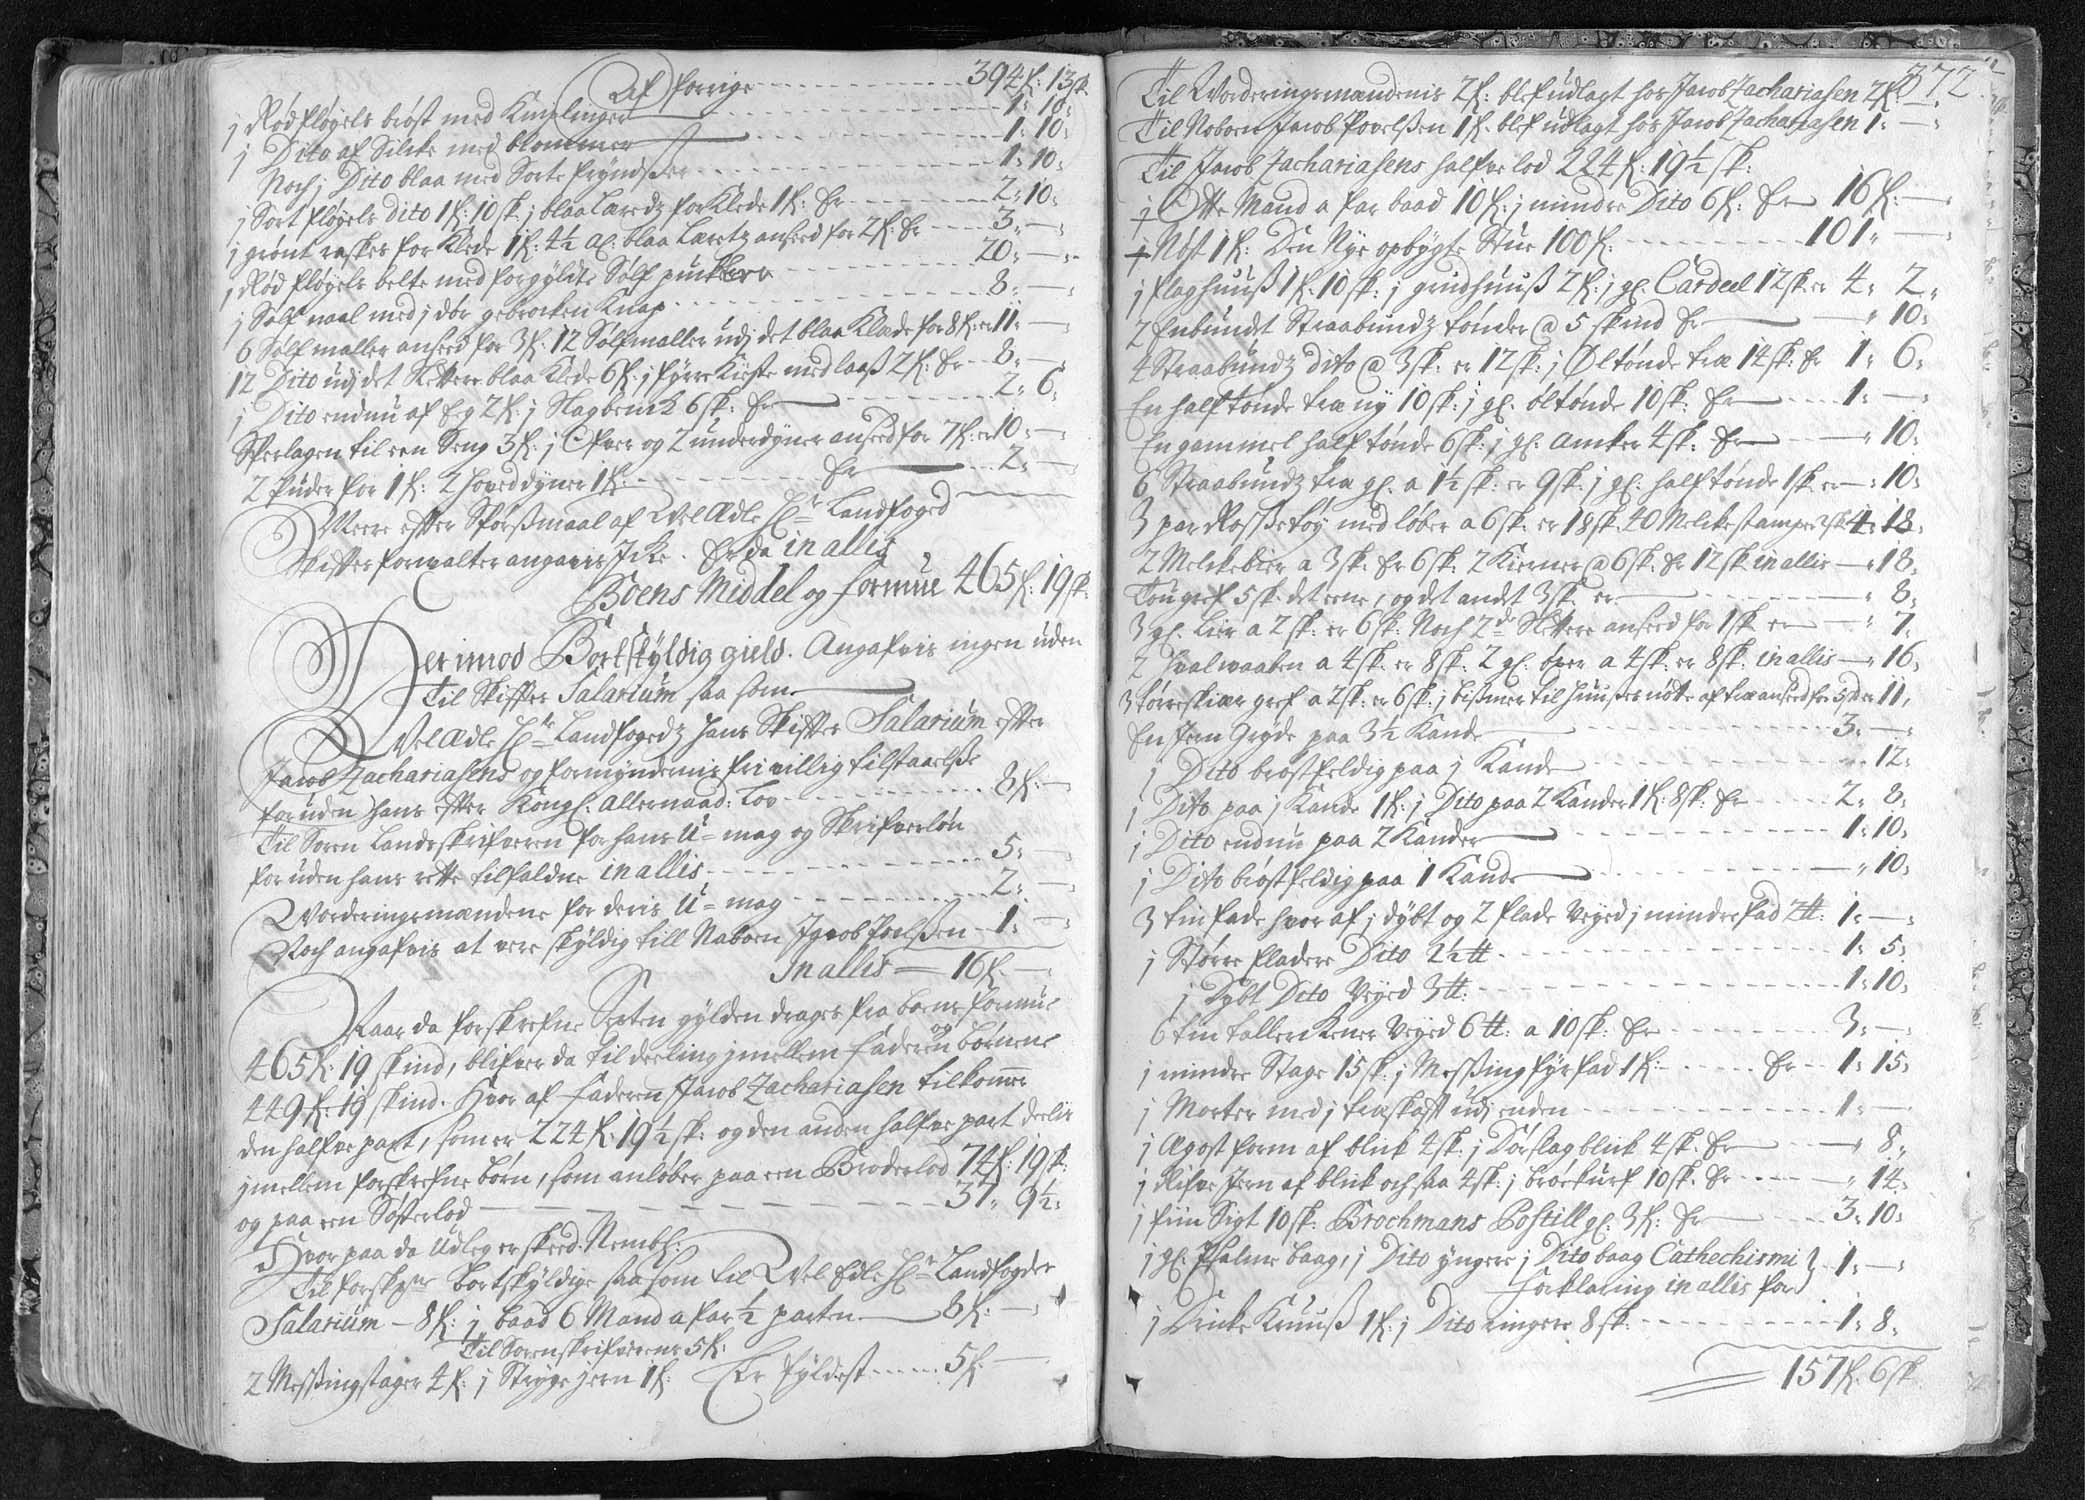 Af forrige - - - 394 f: 13 sk.
j Rød fløyels brøst med Kniplinger - - - 1: 10:
j Dito af Silke med blommer - - - 1: 10:
Noch j Dito blaa med Sorte fryndser - - - 1: 10:
j Sort fløyels dito 1 f: 10 sk: j blaa Læredz forKlede 1 f: Er - - - 2: 10:
j grønt raskes for Klede 1 f: 4½ al: blaa Læretz anseed for 2 f: Er - - - 3: —
j Rød fløyels belte med forgyldte Sølf puckler - - - 20: —
j Sølf naal med j dør gebrocken Knap - - - 8: —
6 Sølf maller anseed for 3 f. 12 Sølfmaller udj det blaa Klæde for 8 f: er 11: —
12 Dito udj det Slettere blaa Klede 6 f. j fyrre Kiste med laaß 2 f: Er - - 8: —
j Dito endnu af Eg 2 f: j Slagbenck 6 sk: Er - - - 2: 6:
Sperlagen til een Seng 3 f: j Ofver og 2 underdyner anseed for 7 f: er 10: —
2 puder for 1 f: 2 hoveddyner 1 f: - - - Er - - - 2: —
Meere efter Spørßmaal af WelÆdle Hr: Landfoged
Skifterforvalter angaves Icke. Er da in allis
Boens Middel og formue 465 f: 19 sk:
Derimod Bortskyldig gield. Angafvis ingen uden
til Skiftes Salarium saa som
WelÆdle Hr: Landfogedz hans Skifter Salarium efter
Jacob Zachariasens og formyndernis frivillig tilstaaelse
foruden hans efter Kongl: allernaad: Lov - - - 8 f: —
Til Soren landskrifveren for hans U=mag og Skrifverløn
foruden hans rette tilfaldne in allis - - - 5: —
Worderingsmændene for deris U=mag - - - 2: —
Noch angafvis at vere skyldig till Naboen Jacob Povlßen - 1: —
In allis — 16 f. —
Naar da forskrefne Sexten gylden drages fra boens formue
465 f: 19 skind, blifver da til deeling jmellem faderen og børnene
449 f: 19 skind. Hvor af faderen Jacob Zachariasen tilkommer
den halfve part, som er 224 f: 19½ sk: og den anden halfve part deelis
jmellem forskrefne børn, som anløber paa een Broderlod 74 f: 19 sk:
og paa een Søsterlod - - - 37: 9½:
Hvor paa da Udleg er skeed. Nembl:
Til forskne: bortskyldige saa som til WelEdle Hr: Landfogder
Salarium — 8 f: j baad 6 Mand a far ½ parten - - - 8 f: —
Til Sorenskrifverens 5 f:
2 Messingstager 4 f: j Stryge jern 1 f: Er fyldest - - - 5 f. —
372
Til Worderingsmændenis 2 f: blef udlagt hos Jacob Zachariasen 2 f: —
Til Naboen Jacob Povelßen 1 f. blef udlagt hos Jacob Zachariasen 1: —
Til Jacob Zachariasens halfve lod 224 f: 19½ sk:
j Otte Mand a far baad 10 f: j mindre Dito 6 f: Er 16 f: —
j Nøst 1 f: Den Nye opbygte Stue 100 f: - - - 101: —
j flaghuuß 1 f. 10 sk: j grudhuuß 2 f: j gl. Cardeel 12 sk. er 4: 2:
2 Enbundt Straabundz tønder @ 5 skind Er - - - : 10:
4 Straabundz dito @ 3 sk: er 12 sk: j Øltønde træ 14 sk: Er 1: 6:
En halftønde træ ny 10 sk: j gl. øltønde 10 sk: Er - - - 1: —
En gammel halftønde 6 sk: j gl. Amker 4 sk: Er - - - : 10:
6 Straabundz træ gl. a 1½ sk: er 9 sk: j gl. halftønde 1 sk: er - : 10:
3 par Røsßetøy med løber a 6 sk: er 18 sk. 40 Melckestamper 2 sk 4: 18:
2 Melckebøer a 3 sk: Er 6 sk: 2 Kierner @ 6 sk: Er 12 sk in allis - : 18:
Tougref 5 sk det eene, og det andet 3 sk: er - - - : 8:
3 gl. Lier a 2 sk: er 6 sk: Noch 2de Slettere anseed for 1 sk er - - : 7:
2 Hvalvaaben a 4 sk: er 8 sk: 2 gl. øxer a 4 sk: er 8 sk: in allis - : 16:
3 gref a 2 sk: er 6 sk: j bißmer til huuses nøtte af træ anseed for 5 sk er 11:
En Jern Gryde paa 3½ Kande - - - 3: —
j Dito brøstfeldig paa j Kande - - - : 12:
j Dito paa j Kande 1 f: j Dito paa 2 Kander 1 f: 8 sk: Er - - - 2: 8:
j Dito endnu paa 2 Kander - - - 1: 10:
j Dito brøstfeldig paa 1 Kande - - - : 10:
3 tinfade hvor af j dybt og 2 flade veyed j mindre fad 2 ℔: 1: —
j Større fladere Dito 2½ ℔ - - - 1: 5:
j Dybt Dito veyed 3 ℔: - - - 1: 10:
6 tin tallerckener veyed 6 ℔: a 10 sk: Er - - - 3: —
j mindre Stage 15 sk: j Messing fyrfad 1 f: - - - Er - - 1: 15:
j Morter med j træskaft udj enden - - - 1: —
j Agost form af blick 4 sk: j Dørslag blick 4 sk: Er - - - : 8:
j Rifve Jern af blick ochsaa 4 sk: j brøckurf 10 sk. Er - - - : 14:
j fiin Sigt 10 sk: Brochmans Postill gl. 3 f: Er - - - 3: 10:
j gl. Psalme baag, j Dito yngere j Dito baag Cathechismi
Forklaring in allis for } 1: —
j Dricke Kruuß 1 f: j Dito ringere 8 sk: - - - 1: 8:
157 f: 6 sk